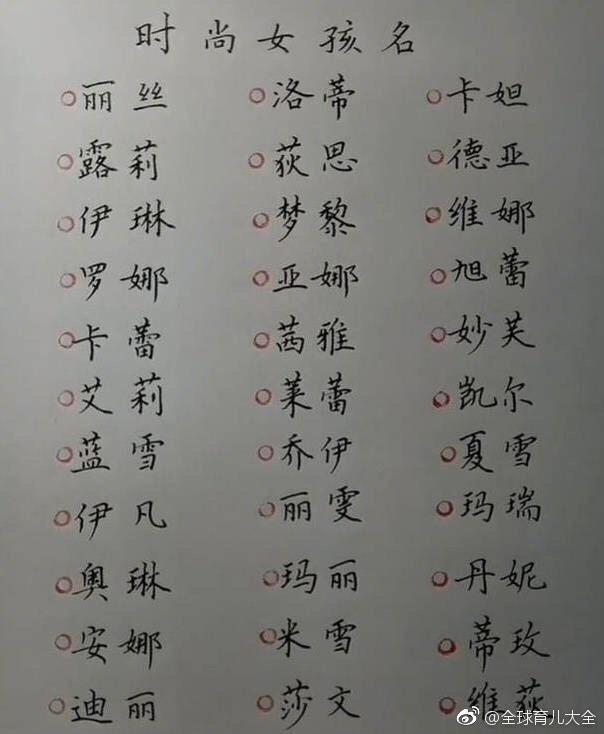 时尚女孩名
丽丝 洛蒂 卡妲
露莉 荻思 德亚
伊琳 梦黎 维娜
罗娜 亚娜 旭蕾
卡蕾 茜雅 妙芙
艾莉 莱蕾 凯尔
蓝雪 乔伊 夏雪
伊凡 丽雯 玛瑞
奥琳 玛丽 丹妮
安娜 米雪 蒂玫
迪丽 莎文 维荻
@全球育儿大全